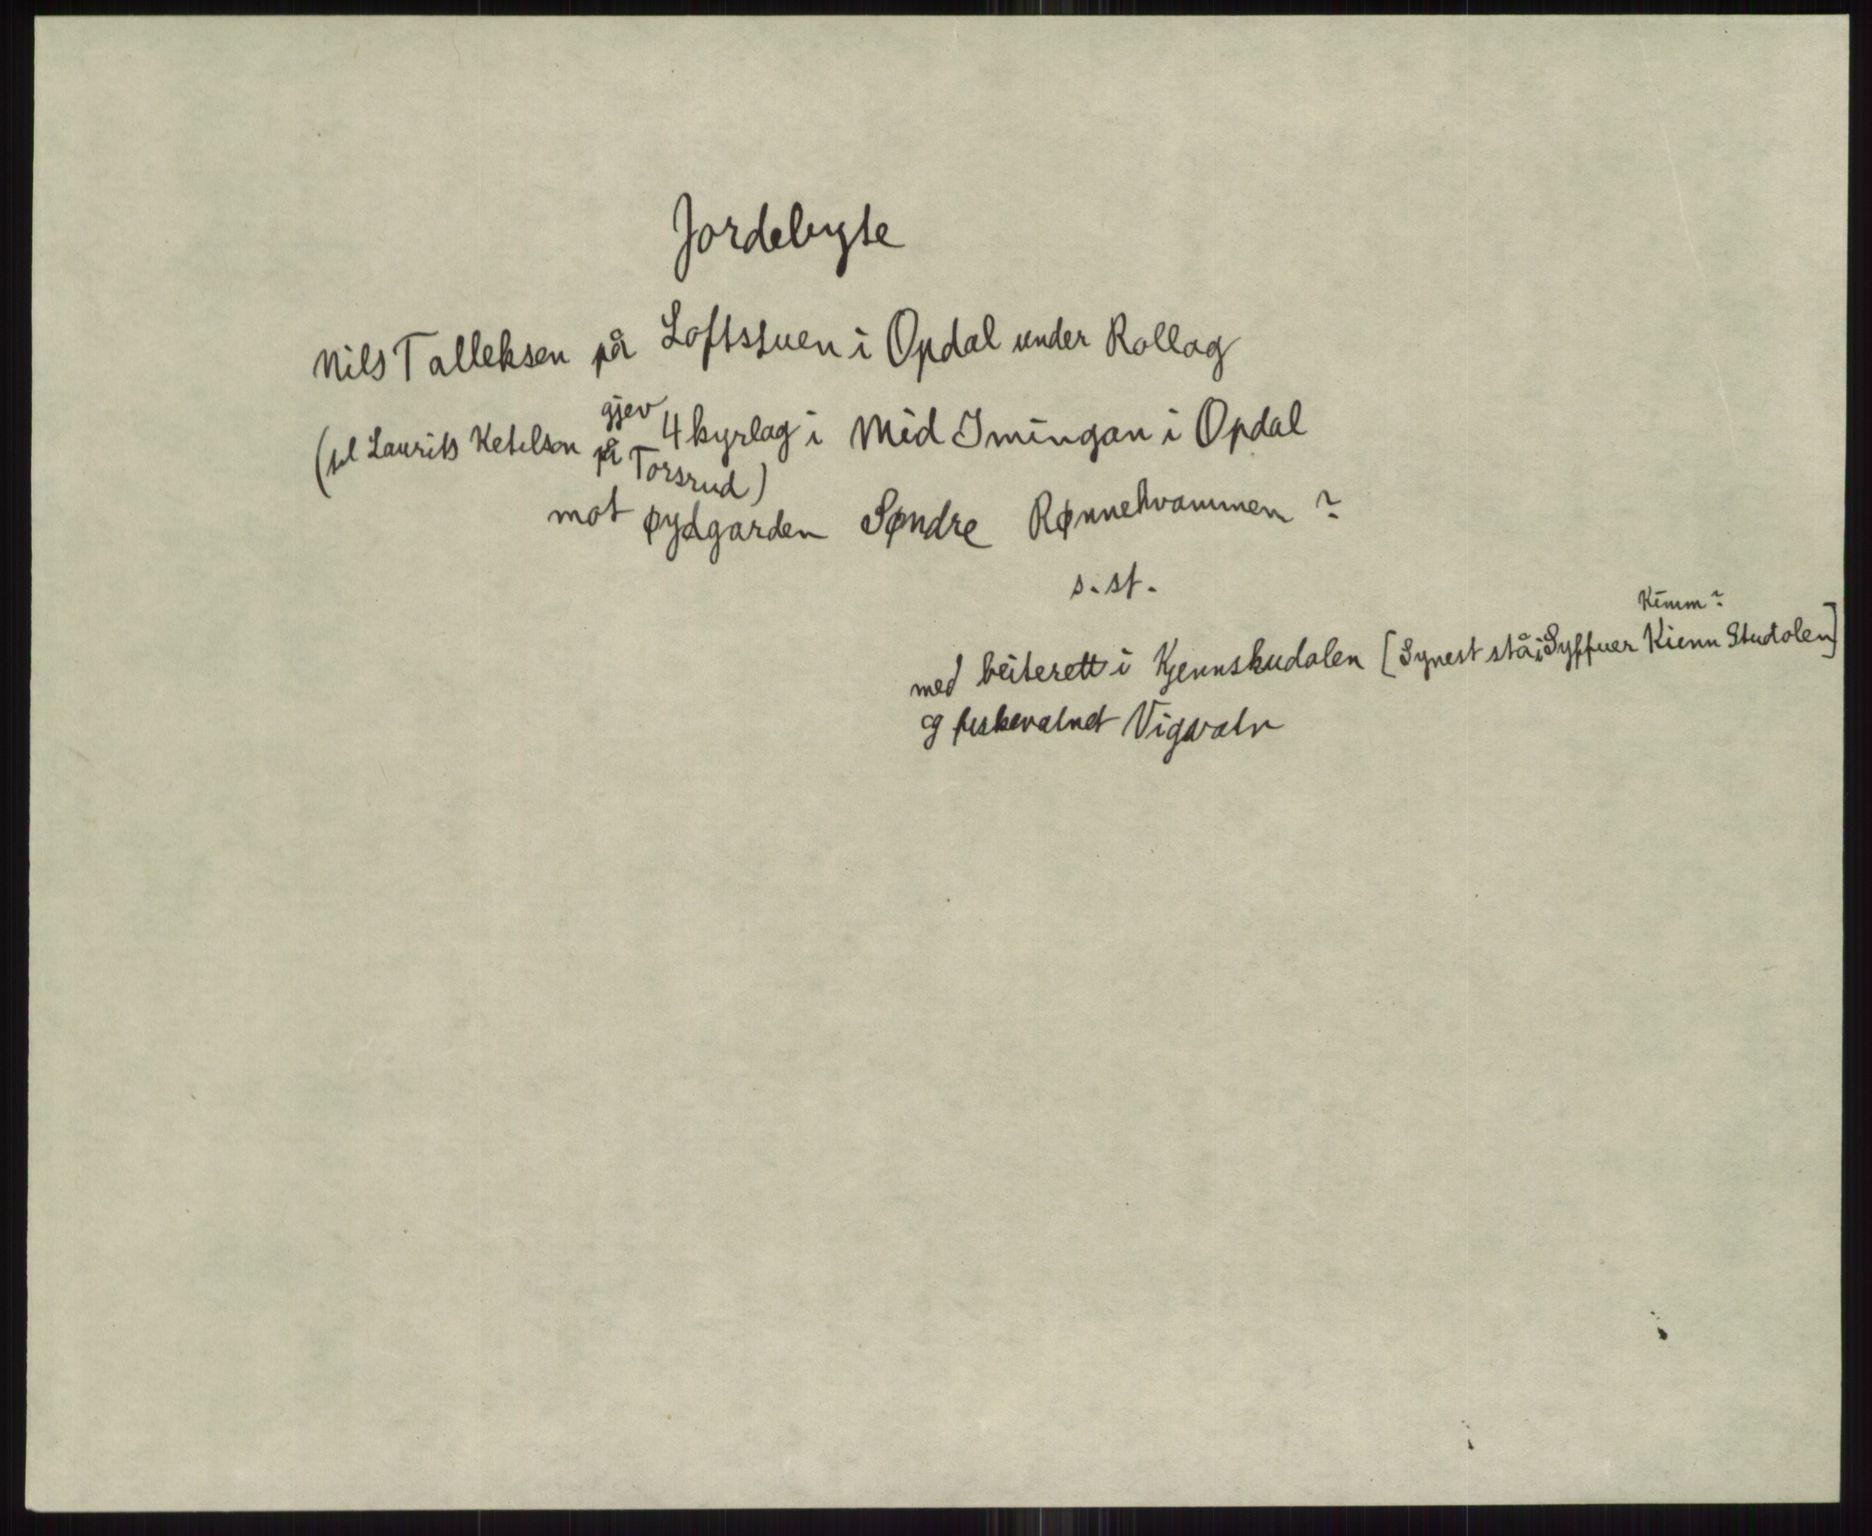 Jordebyte
Nils Talleksen på Loftstuen i Opdal under Rollag
gjev 4 kyrlag i Mid Imingan i Opdal
(til Laurits Ketelson på Torsrud)
mot øydgarden Søndre Rønnekvammen ?
s. st.
Kimm ?
med beiterett i Kjennskudalen [Synest stå i Syffuer Kienn Studolen]
og fiskevatnet Vigvatn